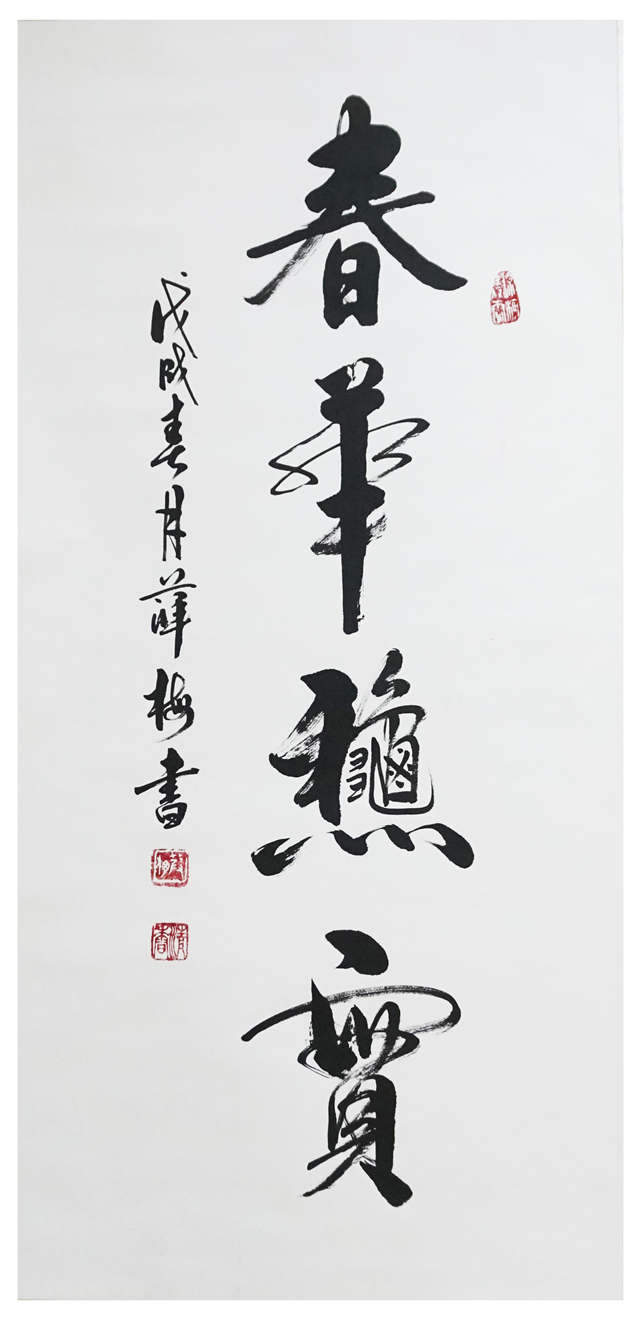 春華龝實
戊戌春月薛梅書